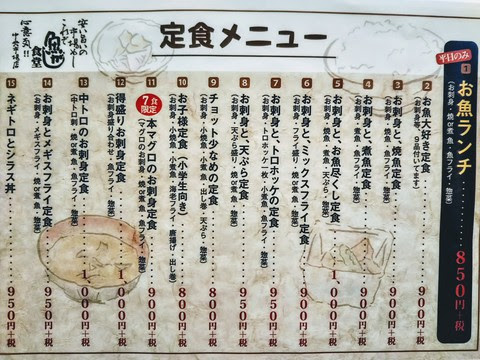 定食メニュー
安い旨いの
市場めし
これぞ
魚し
食堂
心意気!!
平日のみ
1 お魚ランチ……850円+税
(お刺身・焼or煮魚・魚フライ・惣菜)
2 お魚大好き定食……900円+税
(お刺身等、9品付いてます)
3 お刺身と、焼魚定食……900円+税
(お刺身・焼魚・惣菜)
4 お刺身と、煮魚定食……900円+税
(お刺身・煮魚・惣菜)
5 お刺身と、お魚尽くし定食……900円+税
(お刺身・焼or煮魚・魚フライ・惣菜)
6 お刺身と、ミックスフライ定食……900円+税
(お刺身・フライ盛り・焼or煮魚・惣菜)
7 お刺身と、トロホッケの定食……900円+税
(お刺身・トロホッケ一枚・小煮魚・魚フライ・惣菜)
8 お刺身と、天ぷら定食……900円+税
(お刺身・天ぷら盛り・焼or煮魚・惣菜)
9 チョット少なめの定食……900円+税
(お刺身・小焼魚・小煮魚・出し巻・天ぷら・惣菜)
10 お子様定食(小学生向き)……800円+税
(お刺身・小焼魚・小煮魚・海老フライ・唐揚げ・出し巻)
7食限定
11 本マグロのお刺身定食……900円+税
(マグロのお刺身・焼or煮魚・魚フライ・惣菜)
12 得盛りお刺身定食……1,000円+税
(お刺身盛り合わせ・魚フライ・惣菜)
13 中トロのお刺身定食……1,000円+税
(中トロお刺身・焼or煮魚・魚フライ・惣菜)
14 お刺身とメギスフライ定食……950円+税
(お刺身・メギスフライ・焼or煮魚・惣菜)
15 ネギトロとシラス丼……950円+税